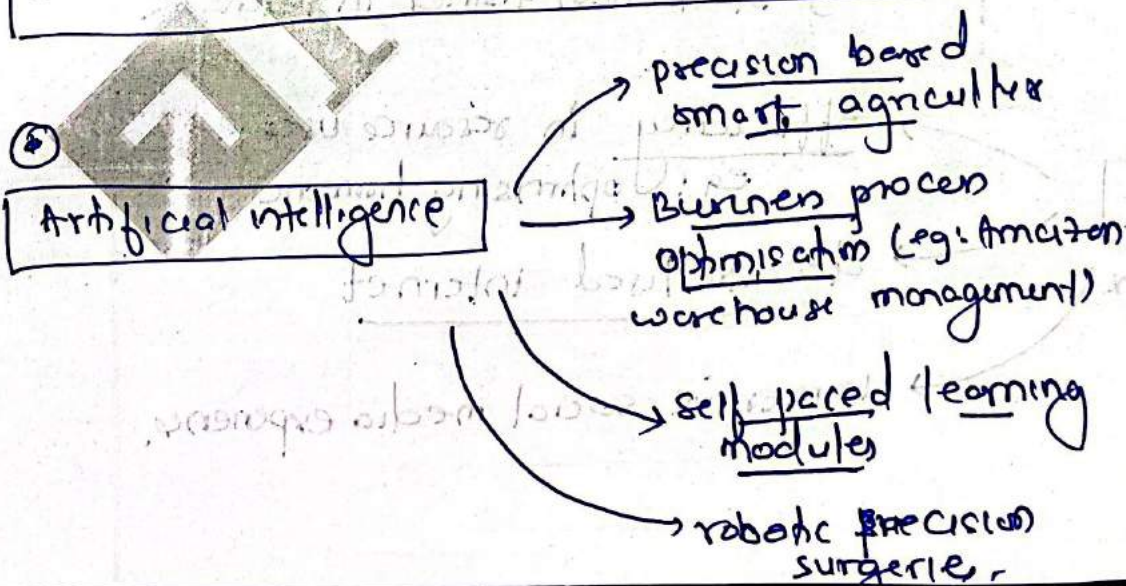 Artificial intelligence
precision based
smart agriculture
Business process
optimisation (eg: Amazon
warehouse management)
self paced learning
modules
robotic precision
surgeries.